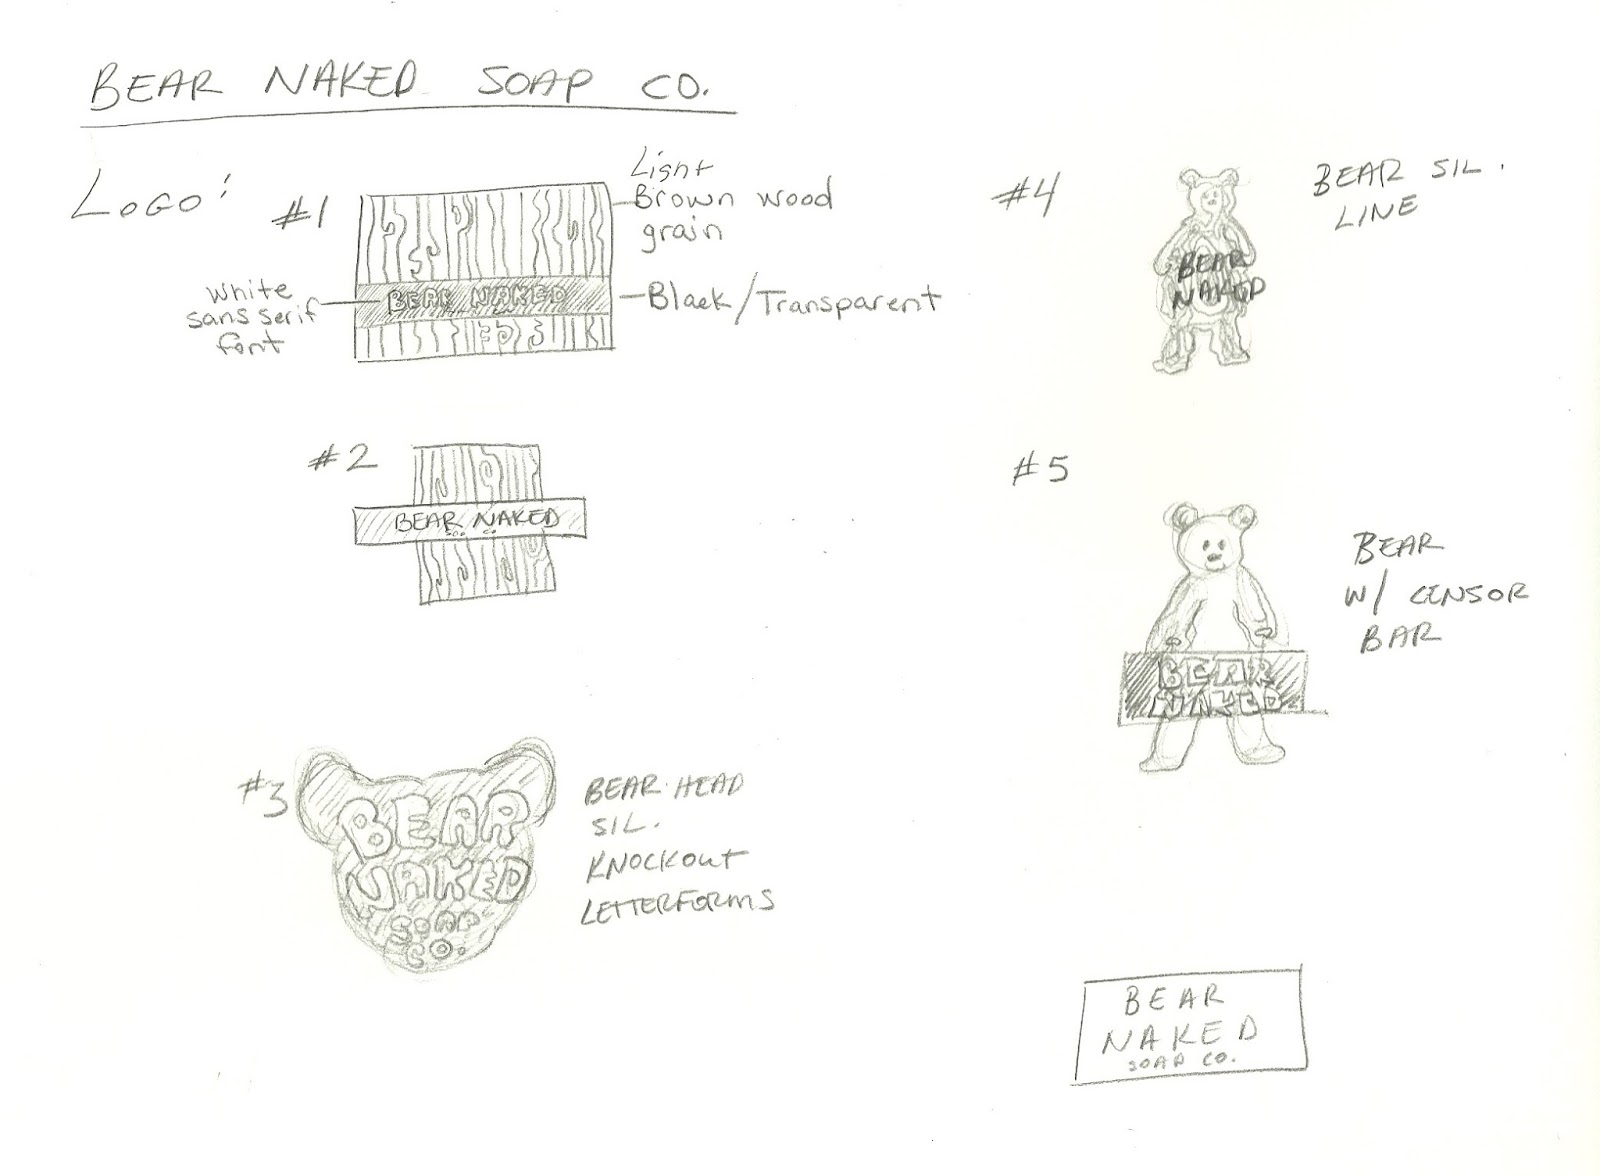 BEAR NAKED SOAP CO.
LOGO:
#1
Light
Brown wood
grain
White
sans serif
font
BEAR NAKED
Black/Transparent
#2
BEAR NAKED
SOAP CO
#3
BEAR
NAKED
SOAP
CO.
BEAR HEAD
SIL.
KNOCKOUT
LETTERFORMS
#4
BEAR
NAKED
BEAR SIL.
LINE
#5
BEAR
NAKED
BEAR
W/ CENSOR
BAR
BEAR
NAKED
SOAP CO.